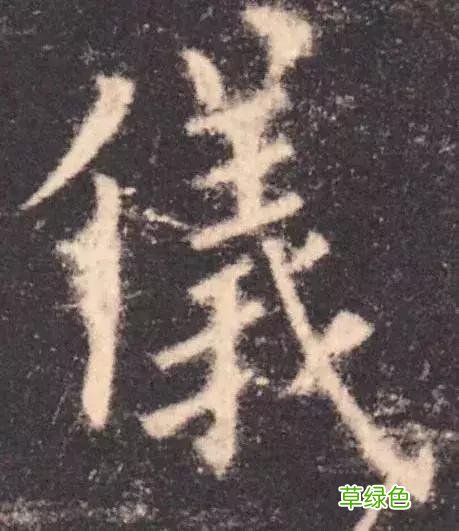 儀
草绿色